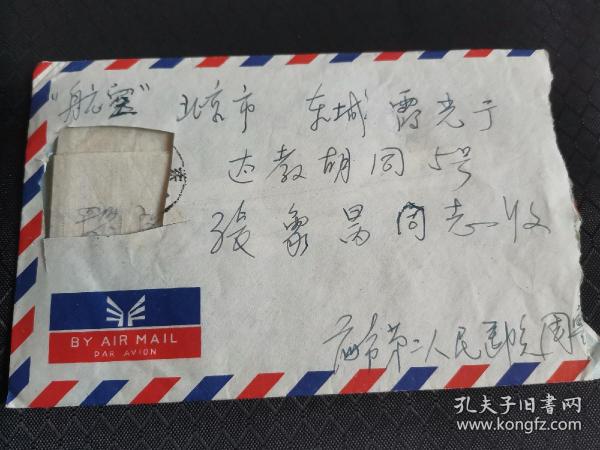 "航空" 北京市 东城 霞光
达教胡同5号
张象昌同志收
广州市第二人民医院周
BY AIR MAIL
PAR AVION
孔夫子旧书网
www.kongfz.com